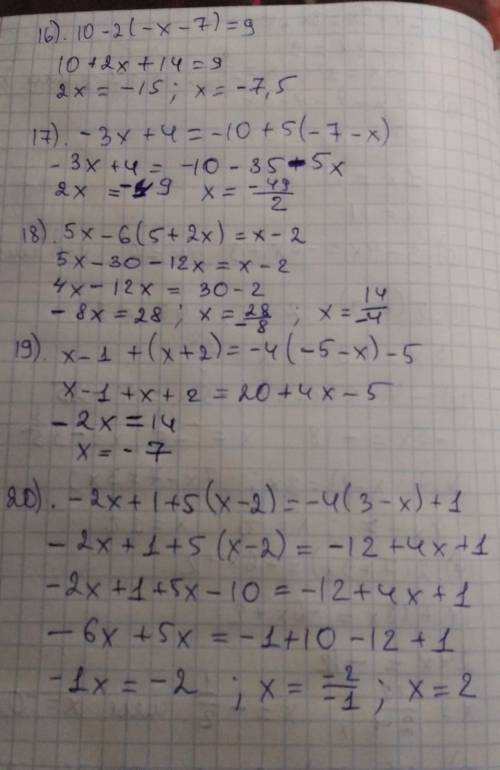 16). 10-2(-x-7)=9
10+2x+14=9
2x = -15; x = -7,5
17). -3x+4 = -10+5(-7-x)
-3x+4 = -10-35-5x
2x = -49 x = -49/2
18). 5x-6(5+2x) = x-2
5x-30-12x = x-2
4x-12x = 30-2
-8x = 28; x = 28/-8; x = 14/-4
19). x-1+(x+2) = -4(-5-x)-5
x-1+x+2 = 20+4x-5
-2x = 14
x = -7
20). -2x+1+5(x-2) = -4(3-x)+1
-2x+1+5(x-2) = -12+4x+1
-2x+1+5x-10 = -12+4x+1
-6x+5x = -1+10-12+1
-1x = -2; x = -2/-1; x = 2